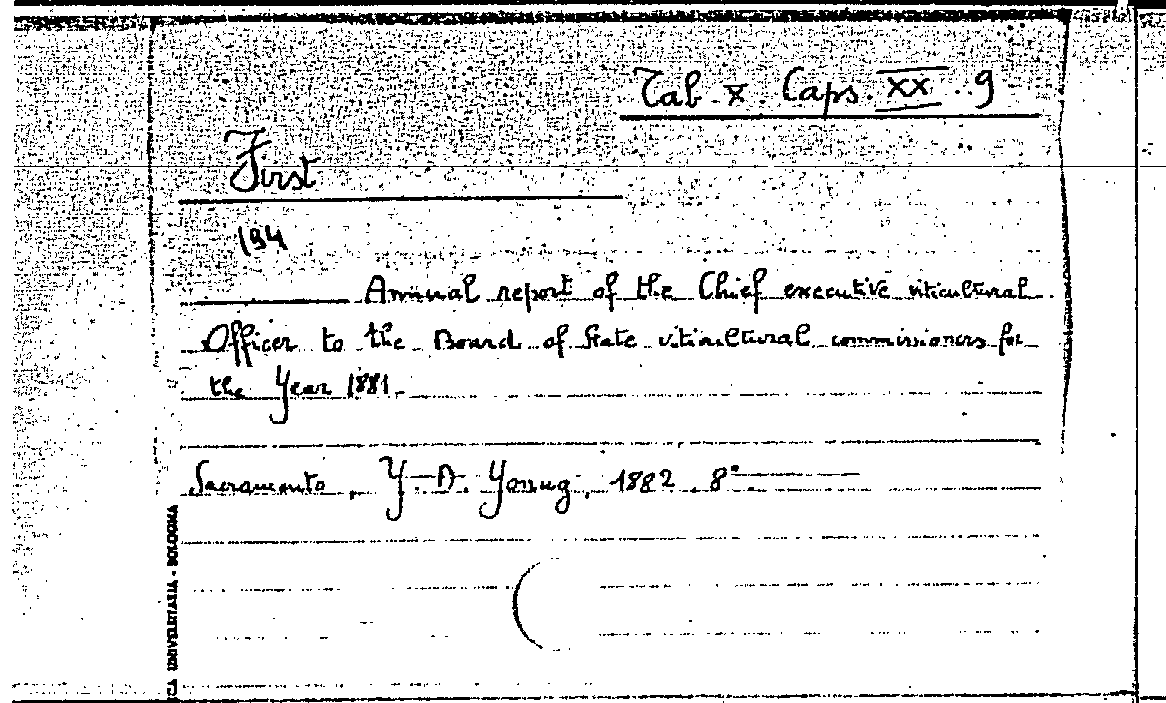 Tab. X. Caps. XX. 9
First
194
Annual report of the Chief executive viticultural
Officer to the Board of State viticultural commissioners for
the Year 1881.
Sacramento, Y. D. Young, 1882. 8°
UNIVERSITARIA - BOLOGNA